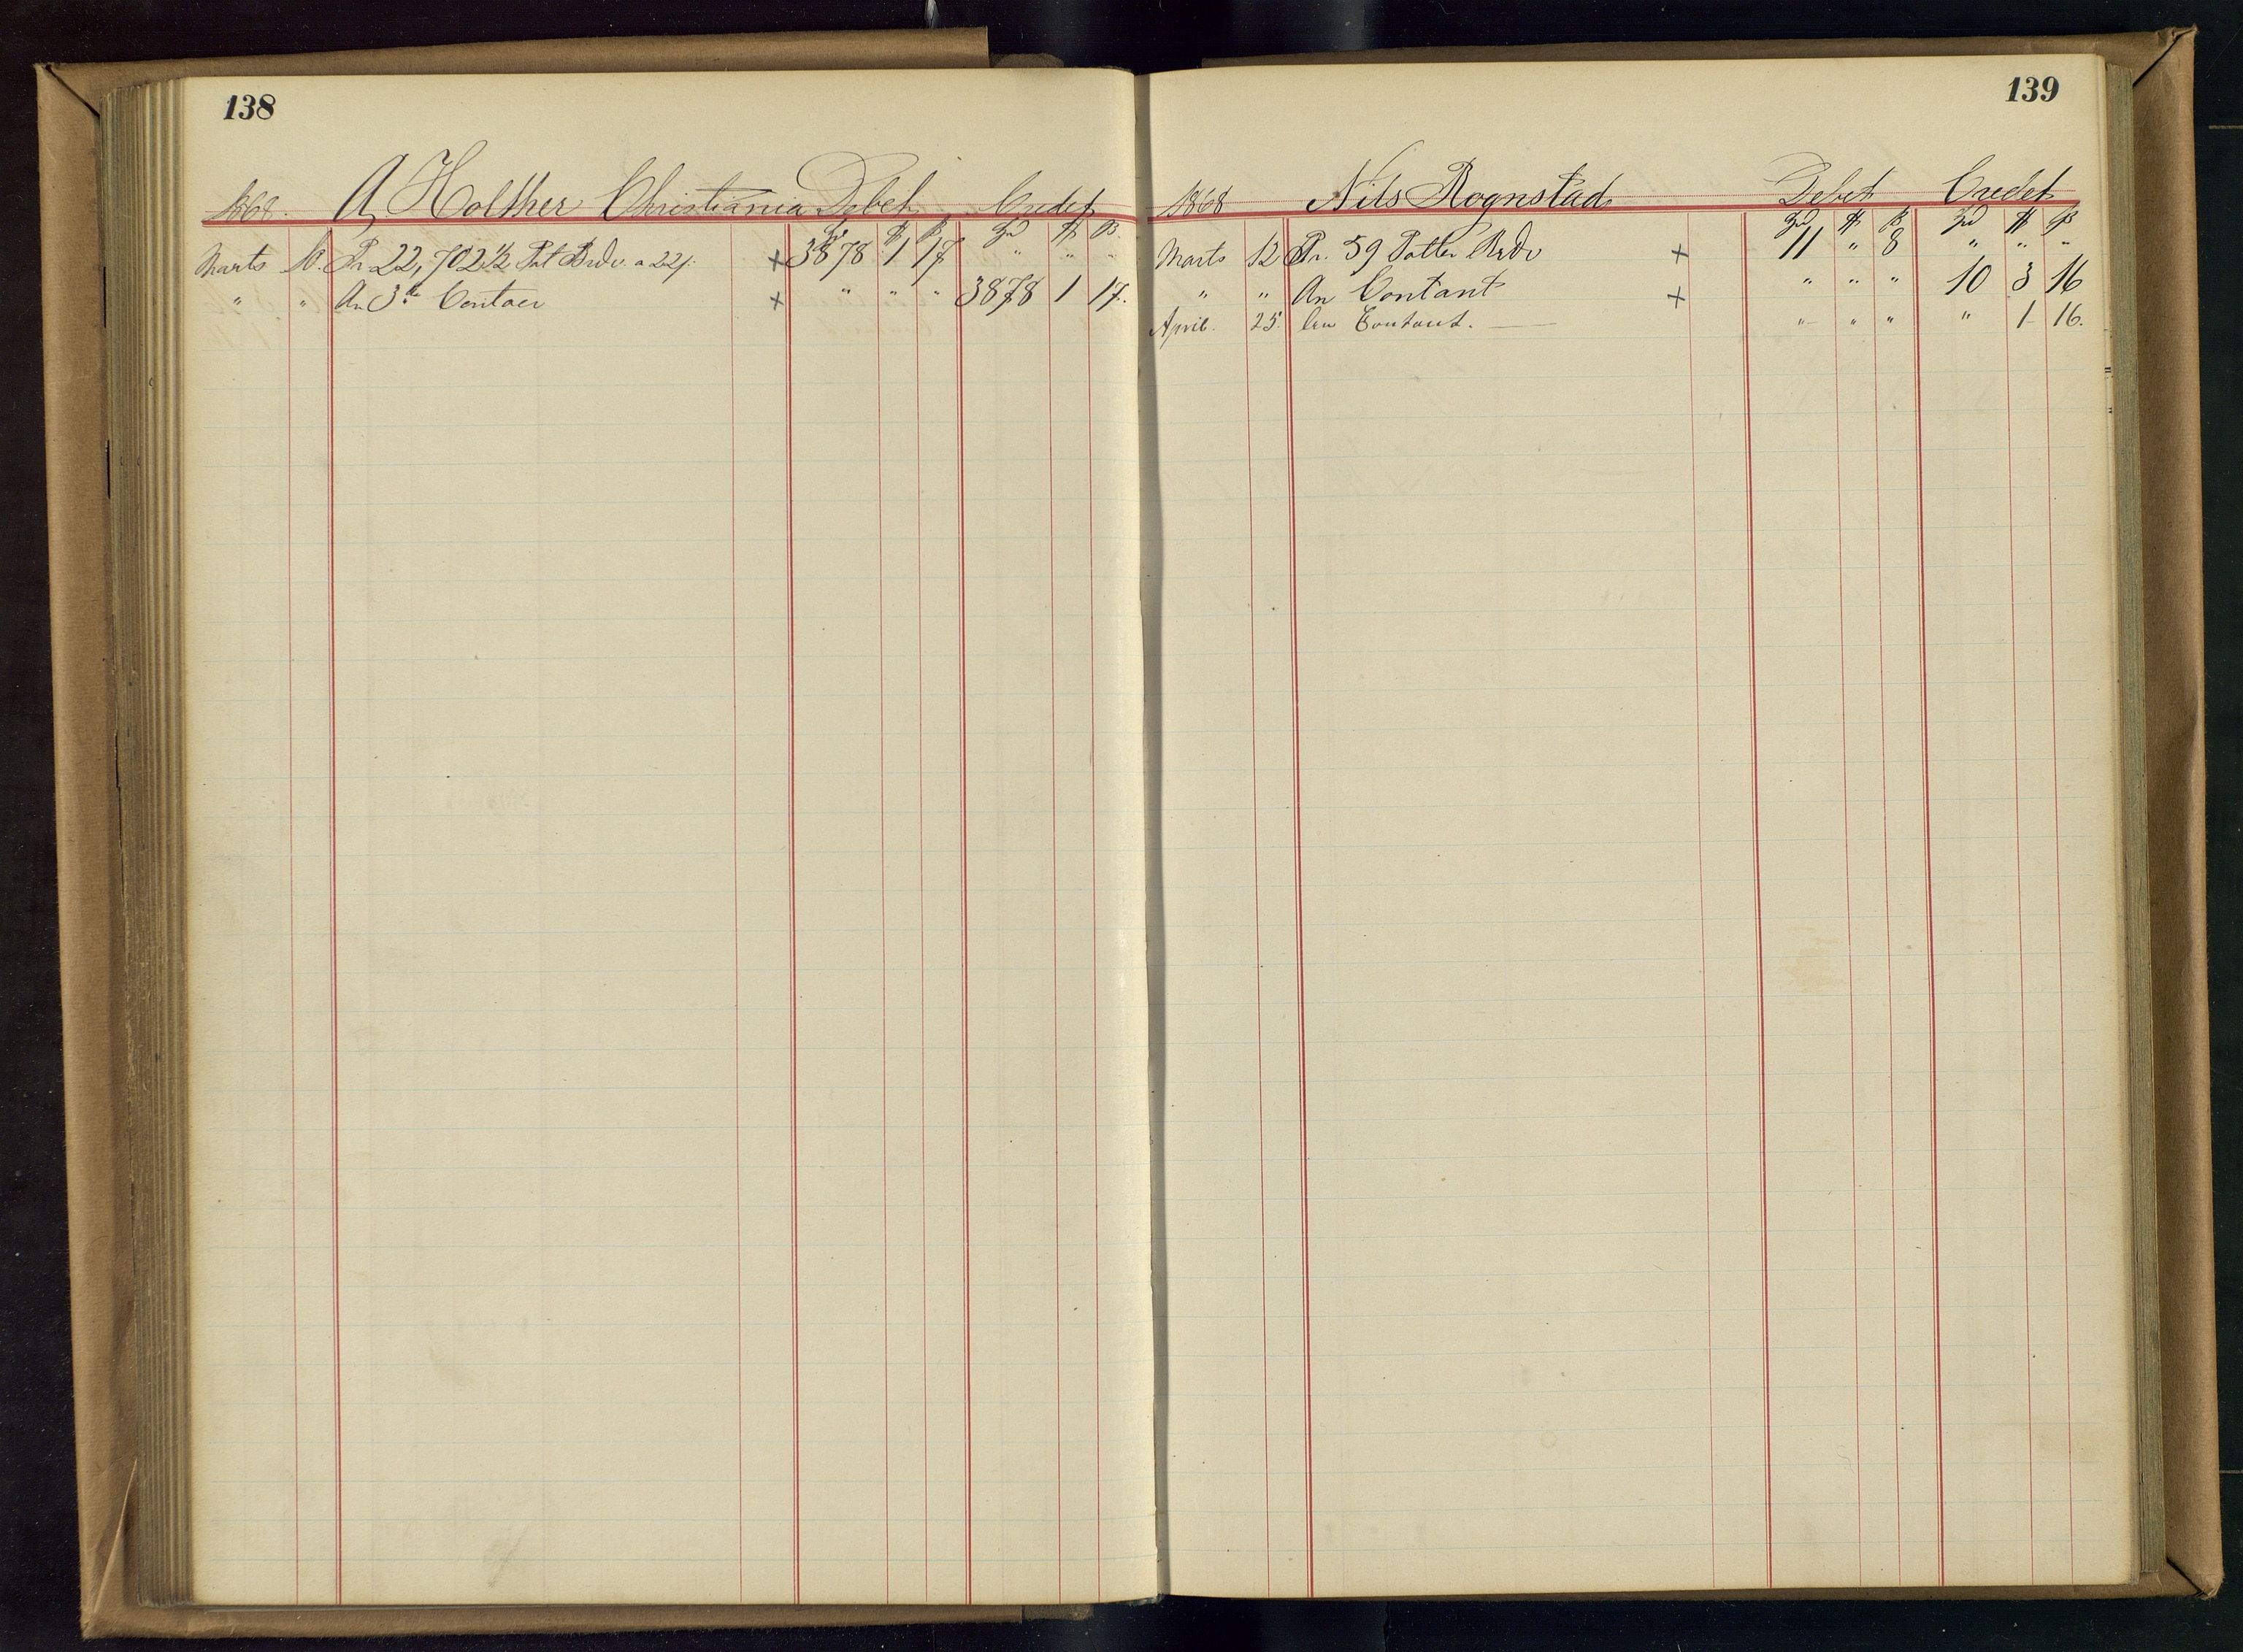 138
1868. A, Holther Christiania Debet Credet
Spd ß Spd ß
Marts 10. Pr 22,702½ Pot Brdv. a 22ß. + 3878 1 17 " " "
" " An 3de Contoer + " " " 3878 1 17.
139
1868 Nils Rognstad Debet Credet
Spd ß Spd ß
Marts 12 Pr. 59 Potter Brdv + 11 " 8 " " "
" " An Contant + " " " 10 3 16
April. 25. An Contant. — " " " " 1 16.